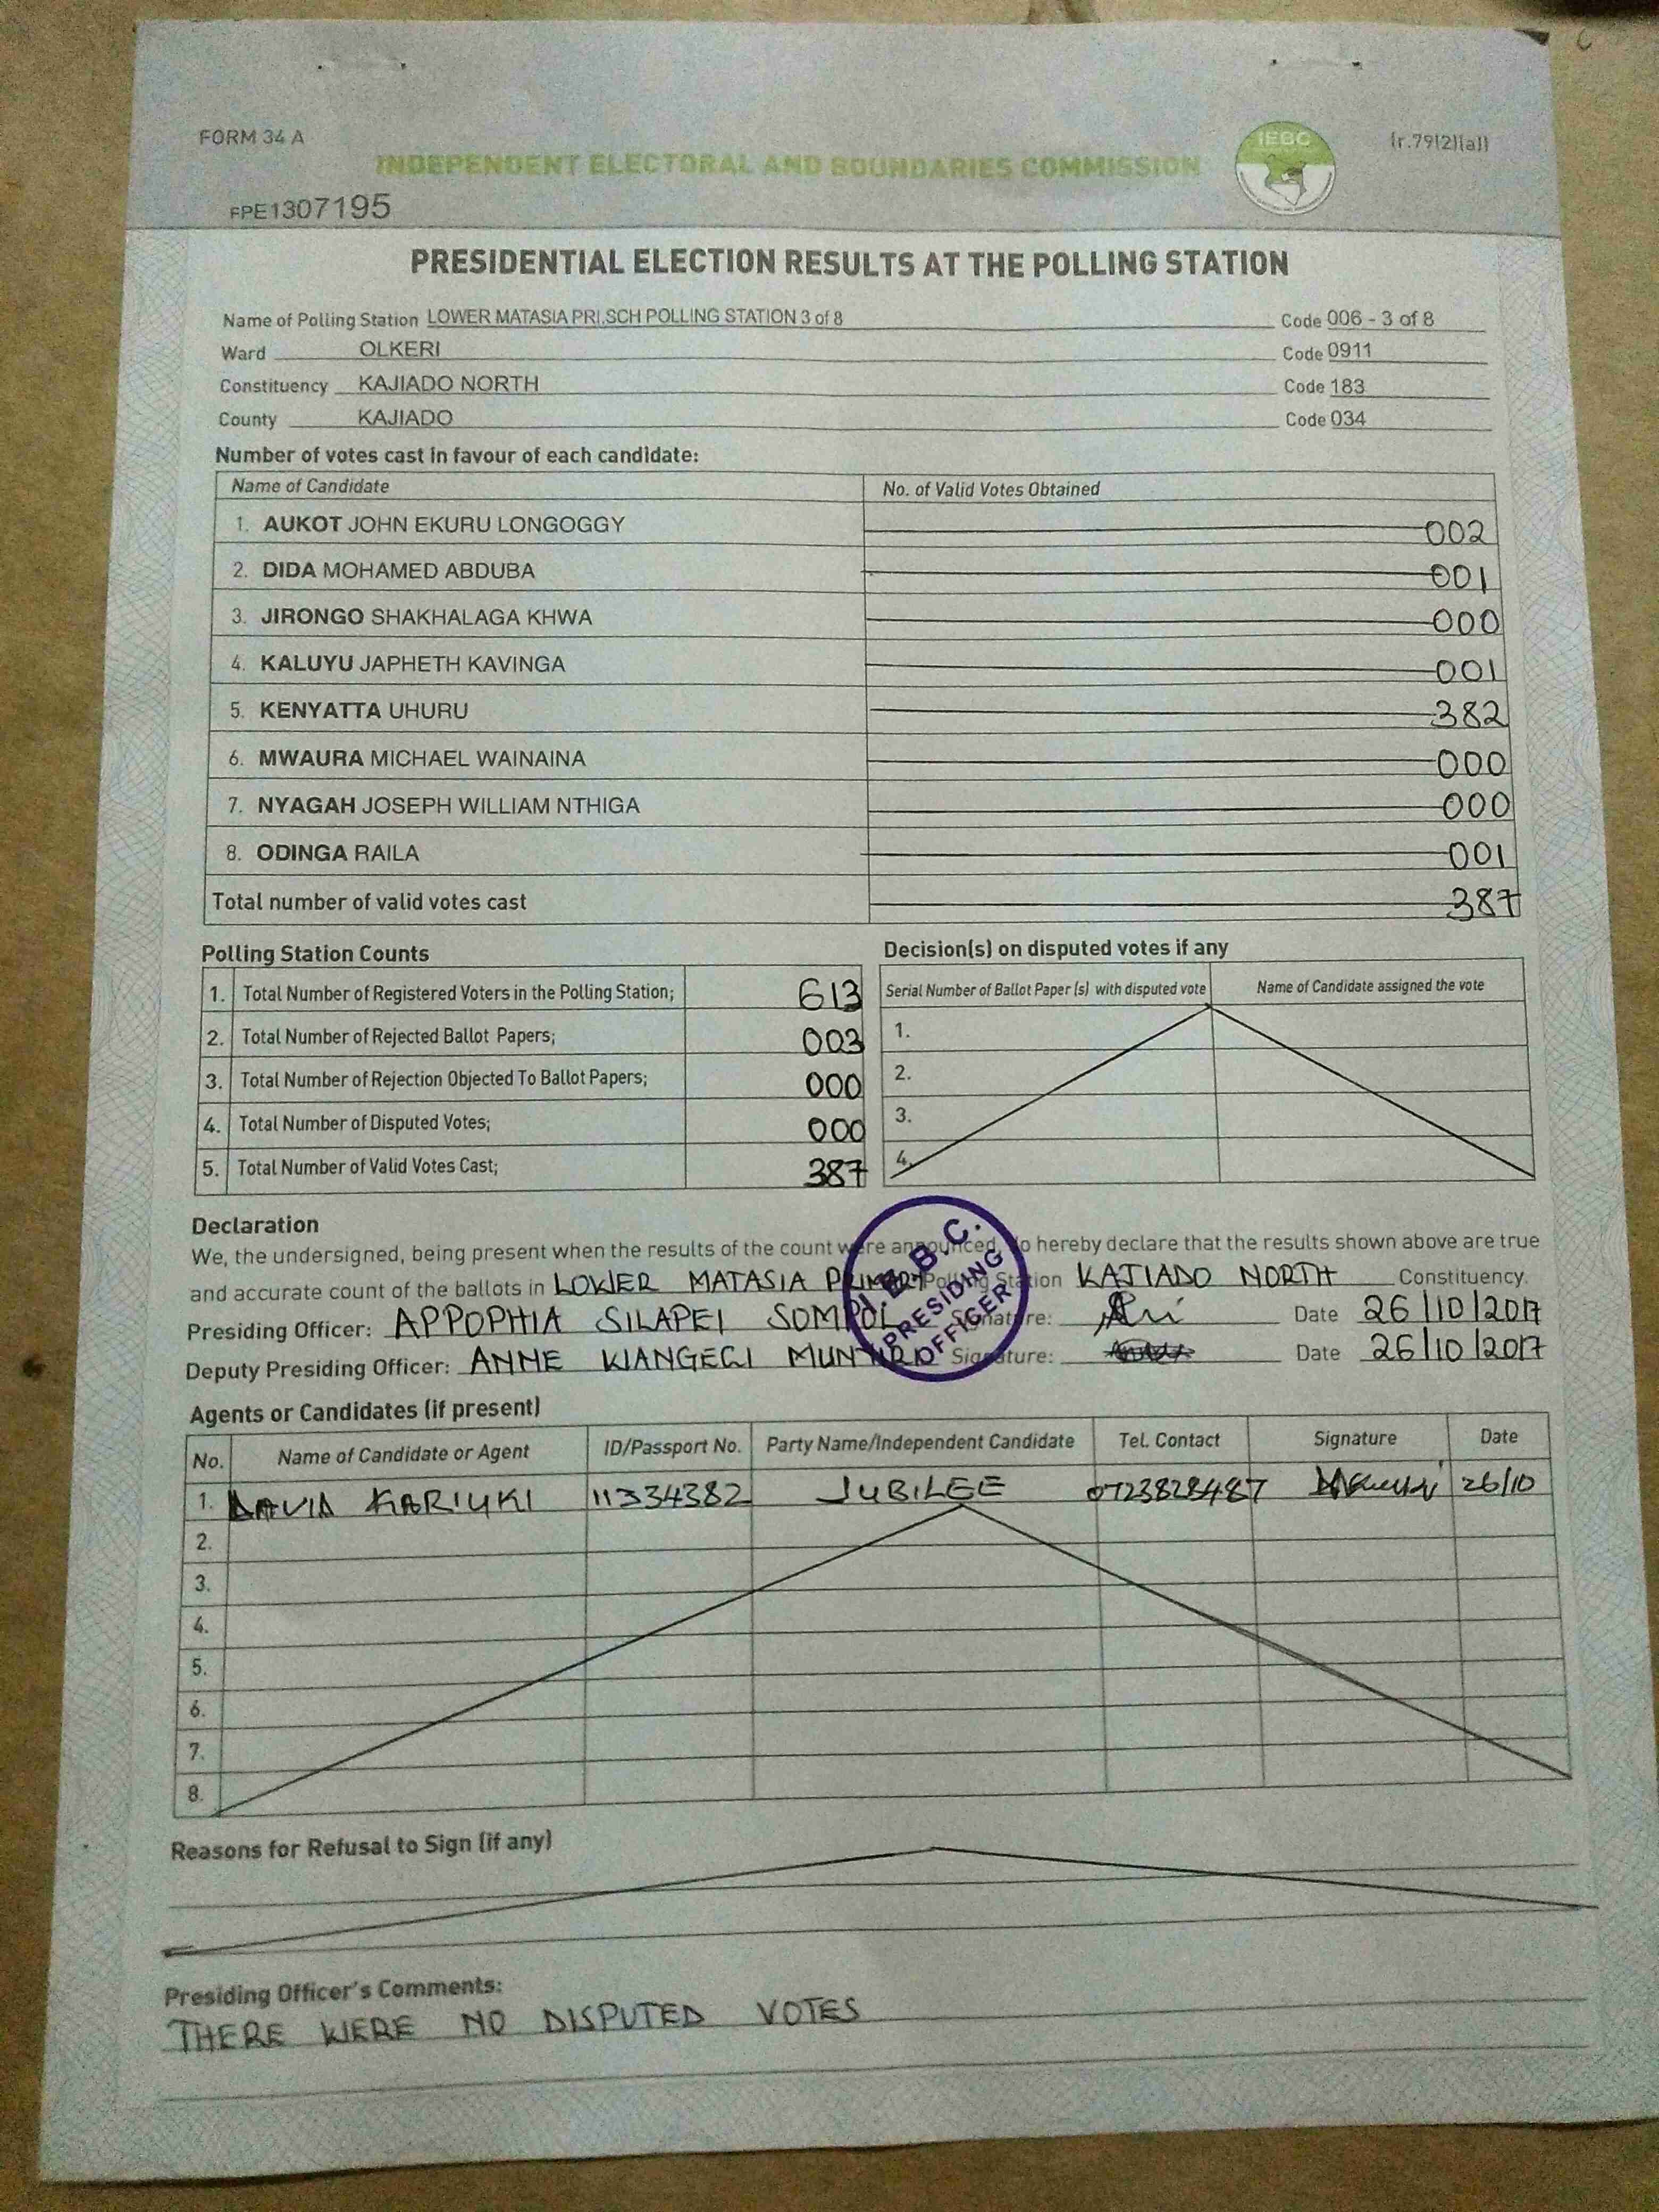 FORM 34 A
IEBC
(r.79(2)(a))
INDEPENDENT ELECTORAL AND BOUNDARIES COMMISSION
FPE1307195
PRESIDENTIAL ELECTION RESULTS AT THE POLLING STATION
Name of Polling Station LOWER MATASIA PRI.SCH POLLING STATION 3 of 8 Code 006 - 3 of 8
Ward OLKERI Code 0911
Constituency KAJIADO NORTH Code 183
County KAJIADO Code 034
Number of votes cast in favour of each candidate:
Name of Candidate No. of Valid Votes Obtained
1. AUKOT JOHN EKURU LONGOGGY 002
2. DIDA MOHAMED ABDUBA 001
3. JIRONGO SHAKHALAGA KHWA 000
4. KALUYU JAPHETH KAVINGA 001
5. KENYATTA UHURU 382
6. MWAURA MICHAEL WAINAINA 000
7. NYAGAH JOSEPH WILLIAM NTHIGA 000
8. ODINGA RAILA 001
Total number of valid votes cast 387
Polling Station Counts
1. Total Number of Registered Voters in the Polling Station; 613
2. Total Number of Rejected Ballot Papers; 003
3. Total Number of Rejection Objected To Ballot Papers; 000
4. Total Number of Disputed Votes; 000
5. Total Number of Valid Votes Cast; 387
Decision(s) on disputed votes if any
Serial Number of Ballot Paper (s) with disputed vote Name of Candidate assigned the vote
1.
2.
3.
4.
Declaration
We, the undersigned, being present when the results of the count were announced, do hereby declare that the results shown above are true
and accurate count of the ballots in LOWER MATASIA PRIMARY Polling Station KAJIADO NORTH Constituency.
Presiding Officer: APPOPHIA SILAPEI SOMPOL Signature: Date 26/10/2017
Deputy Presiding Officer: ANNE Signature: Date 26/10/2017
I.E.B.C.
PRESIDING
OFFICER
Agents or Candidates (if present)
No. Name of Candidate or Agent ID/Passport No. Party Name/Independent Candidate Tel. Contact Signature Date
1. DAVID KARIUKI 11334382 JUBILEE 0723828487 26/10
2.
3.
4.
5.
6.
7.
8.
Reasons for Refusal to Sign (if any)
Presiding Officer's Comments:
THERE WERE NO DISPUTED VOTES